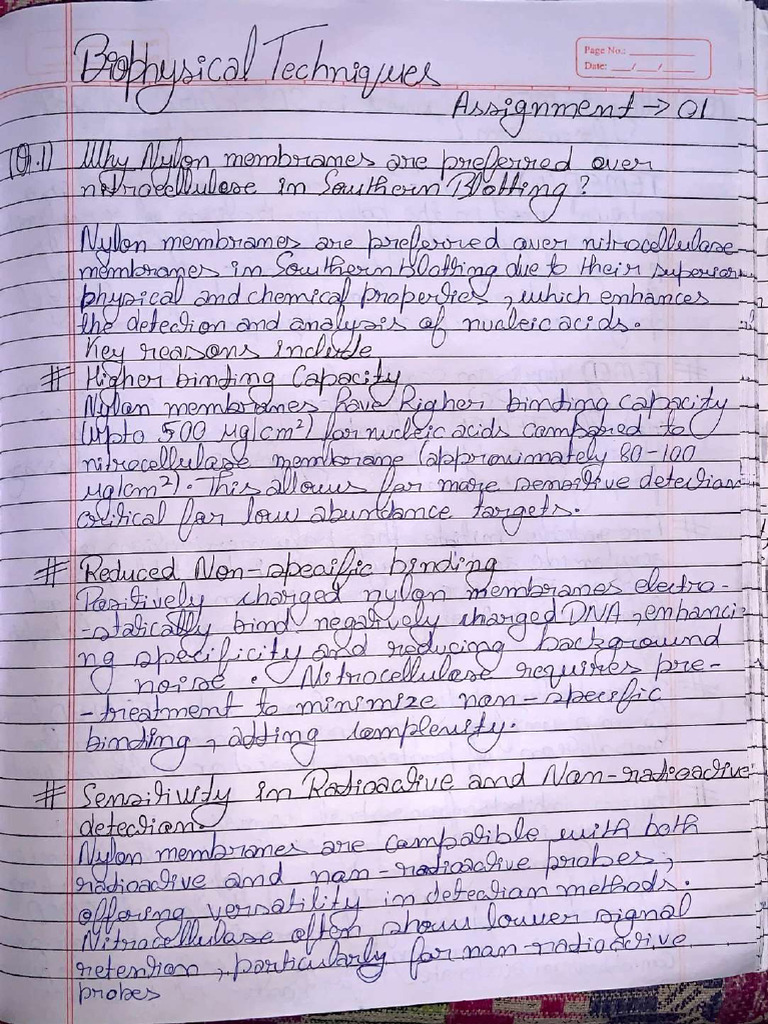 Page No.:
Date: __/__/__
Biophysical Techniques
Assignment → 01
(Q.1) Why Nylon membranes are preferred over
nitrocellulose in Southern Blotting?
Nylon membranes are preferred over nitrocellulose
membranes in Southern Blotting due to their superior
physical and chemical properties, which enhances
the detection and analysis of nucleic acids.
Key reasons include
# Higher binding Capacity
Nylon membranes have higher binding capacity
(upto 500 µg/cm²) for nucleic acids compared to
nitrocellulose membrane (approximately 80-100
µg/cm²). This allows for more sensitive detection
critical for low abundance targets.
# Reduced Non-specific binding
Positively charged nylon membranes electro-
-statically bind negatively charged DNA, enhanci-
ng specificity and reducing background
noise. Nitrocellulose requires pre-
-treatment to minimize non-specific
binding, adding complexity.
# Sensitivity in Radioactive and Non-radioactive
detection.
Nylon membranes are compatible with both
radioactive and non-radioactive probes,
offering versatility in detection methods.
Nitrocellulose often shows lower signal
retention, particularly for non-radioactive
probes